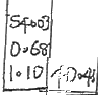 54.03
0.68
1.10 40.41